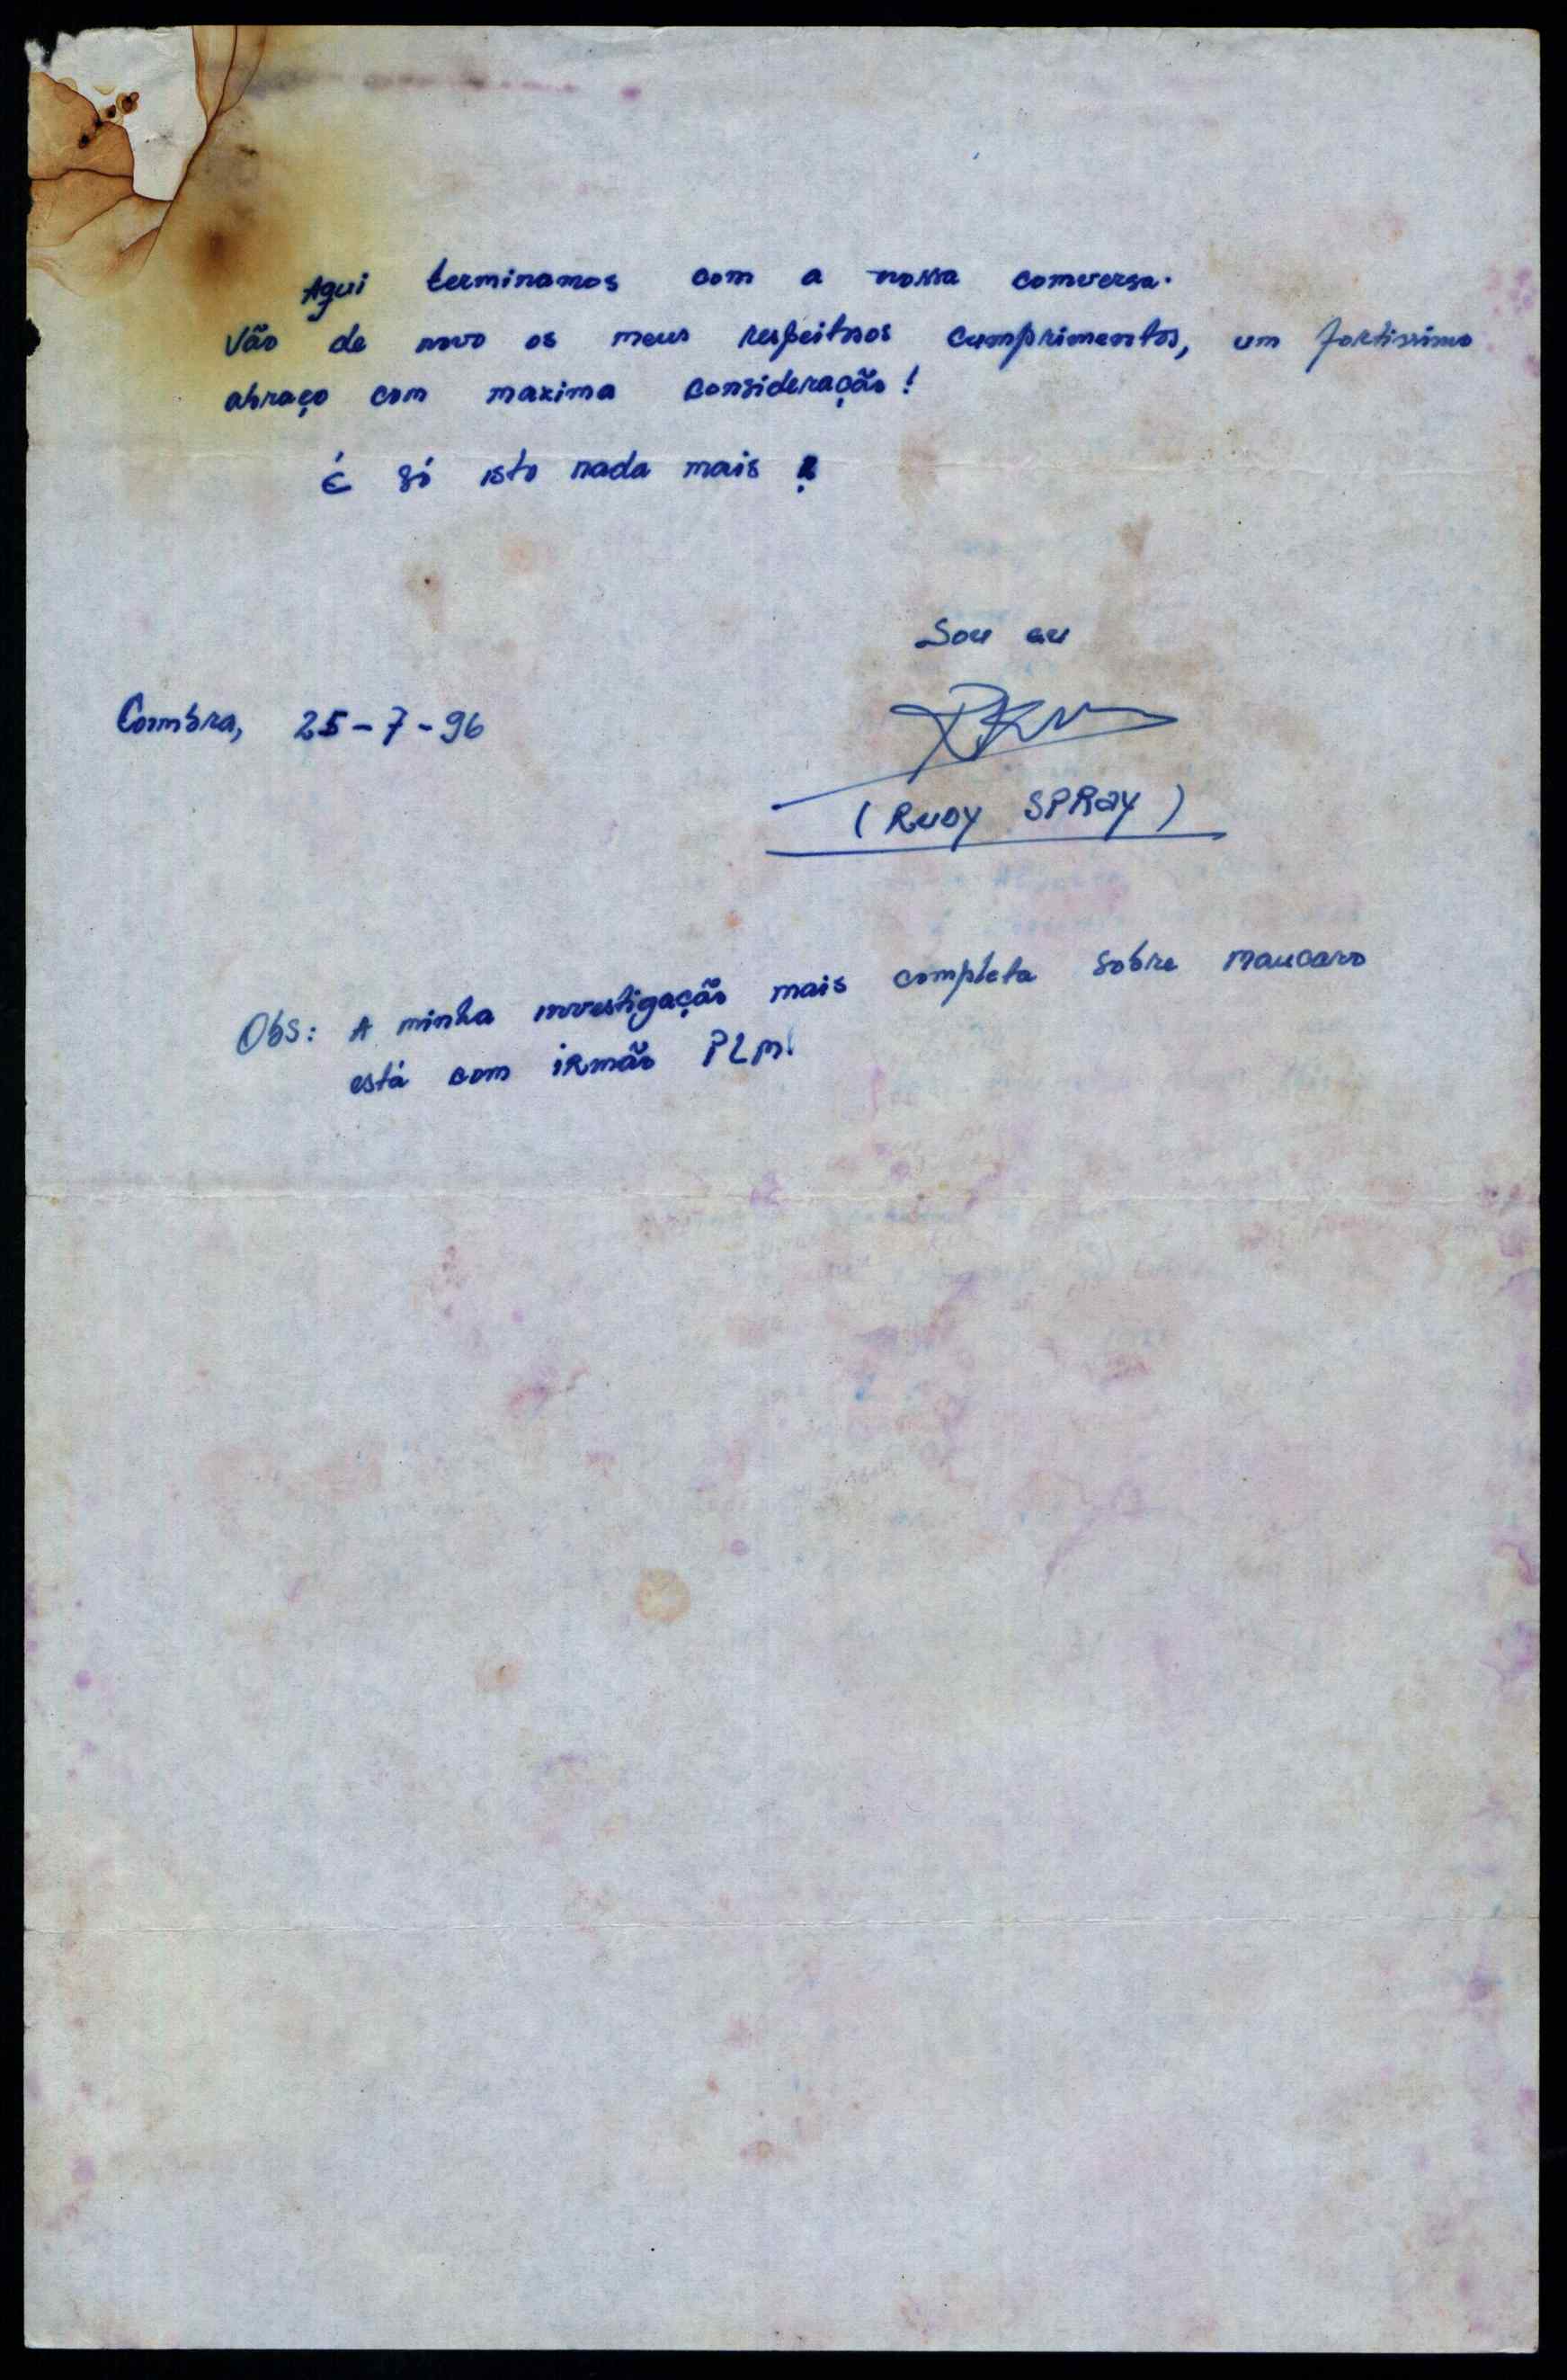 Aqui terminamos com a nossa comversa.
Vão de novo os meus respeitosos cumprimentos, um fortissimo
abraço com maxima consideração!
É só isto nada mais
Sou eu
Coimbra, 25-7-96
(RUDY SPRay)
Obs: A minha investigação mais completa sobre maucaro
está com irmão PLM!